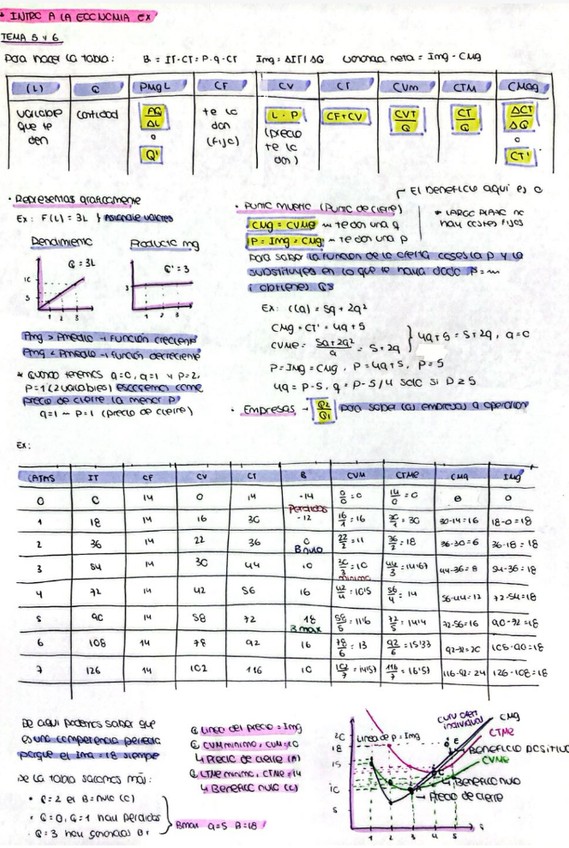 * INTRO A LA ECONOMIA ex
TEMA 5 y 6
Para hacer la tabla: B = IT-CT = P·q-CT Img = ΔIT/ΔQ Ganancia neta = Img - CMg
(L) Q PMgL CF CV CT CVM CTM CMag
variable que te den
cantidad
ΔQ/ΔL o Q'
te lo dan (fijo)
L · P (precio te lo dan)
CF+CV
CVT/Q
CT/Q
ΔCT/ΔQ o CT'
· Representas graficamente
Ex: F(L) = 3L
Rendimiento Producto mg
Q = 3L
Q' = 3
1 2 3
1 2 3
Pmg > Pmedio → Función creciente
Pmg < Pmedio → Función decreciente
* Cuando tenemos q=0, q=1 y P=2,
P=1 (2 variables) escogemos como
precio de cierre la menor P
q=1 → P=1 (precio de cierre)
· Punto muerto (Punto de cierre)
El beneficio aquí es 0
* LARGO PLAZO no hay costes fijos
CMg = CVMe → te dan una q
P = Img = CMg → te dan una P
Para saber la función de la oferta coges la P y la
substituyes en lo que te haya dado P=
obtienes Qs
Ex: C(q) = 5q + 2q²
CMg = CT' = 4q + 5
CVMe = 5q+2q²/q = 5 + 2q
4q+5 = 5+2q, q=0
P = Img = CMg, P = 4q+5, P = 5
4q = P-5, q = P-5/4 solo si P ≥ 5
· Empresas → Q2/Q1 para saber las empresas a operar
Ex:
LATAS IT CF CV CT B CVM CTMe CMg IMg
0 0 14 0 14 -14 0/0 = 0 14/0 = 0 0 0
Perdidas
1 18 14 16 30 -12 16/1 = 16 30/1 = 30 30-14=16 18-0=18
2 36 14 22 36 0 22/2 = 11 36/2 = 18 36-30=6 36-18=18
B nulo
3 54 14 30 44 10 30/3 = 10 44/3 = 14'67 44-36=8 54-36=18
mínimo
4 72 14 42 56 16 42/4 = 10'5 56/4 = 14 56-44=12 72-54=18
5 90 14 58 72 18 58/5 = 11'6 72/5 = 14'4 72-56=16 90-72=18
B max
6 108 14 78 92 16 78/6 = 13 92/6 = 15'33 92-72=20 108-90=18
7 126 14 102 116 10 102/7 = 14'57 116/7 = 16'57 116-92=24 126-108=18
De aquí podemos saber que
es una competencia perfecta
porque el Img = 18 siempre
De la tabla sacamos más:
· Q=2 el B=nulo (C)
· Q=0, Q=1 hay perdidas
· Q=3 hay ganancias B↑
Bmax q=5 B=18
Linea del precio = Img
CVM minimo, CVM=10
↳ Precio de cierre (A)
CTMe minimo, CTMe=14
↳ Beneficio nulo (C)
20
18
15
10
5
Linea de p = Img
curv ofert individual
CMg
CTMe
BENEFICIO POSITIVO
CVMe
Beneficio nulo
Precio de cierre
1 2 3 4 5